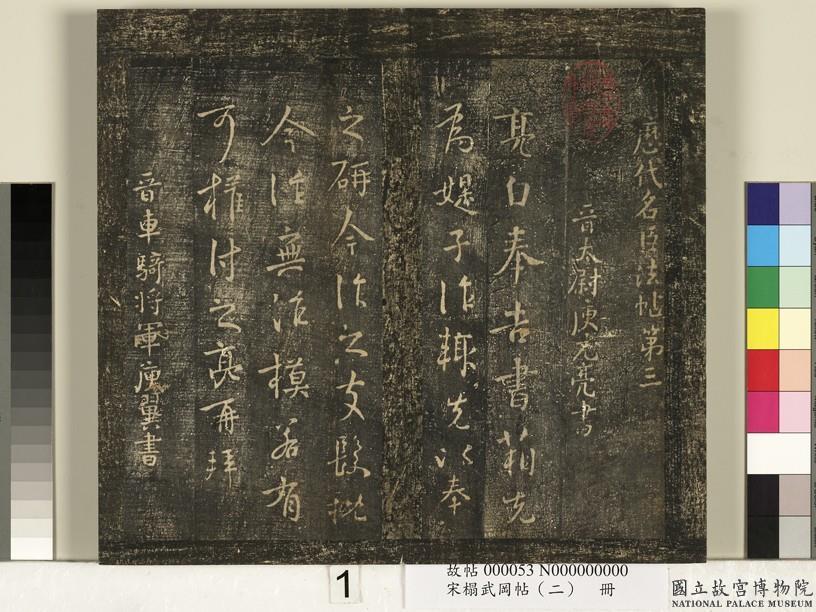 歷代名臣法帖第三
晉太尉庾元亮書
亮白奉告書箱先
為媞子作輙先以奉
之研今作之支髮批
今作無法模若有
可權付之亮再拜
晉車騎將軍庾翼書
1
故帖 000053 N000000000
宋榻武岡帖（二） 冊
國立故宮博物院
NATIONAL PALACE MUSEUM